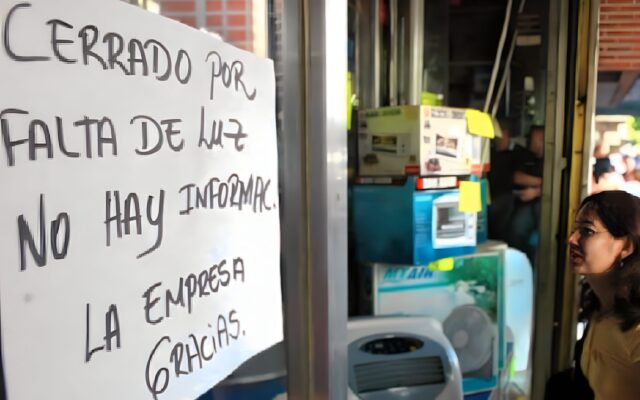 CERRADO POR
FALTA DE LUZ
NO HAY INFORMAC.
LA EMPRESA
GRACIAS.
MYAIR